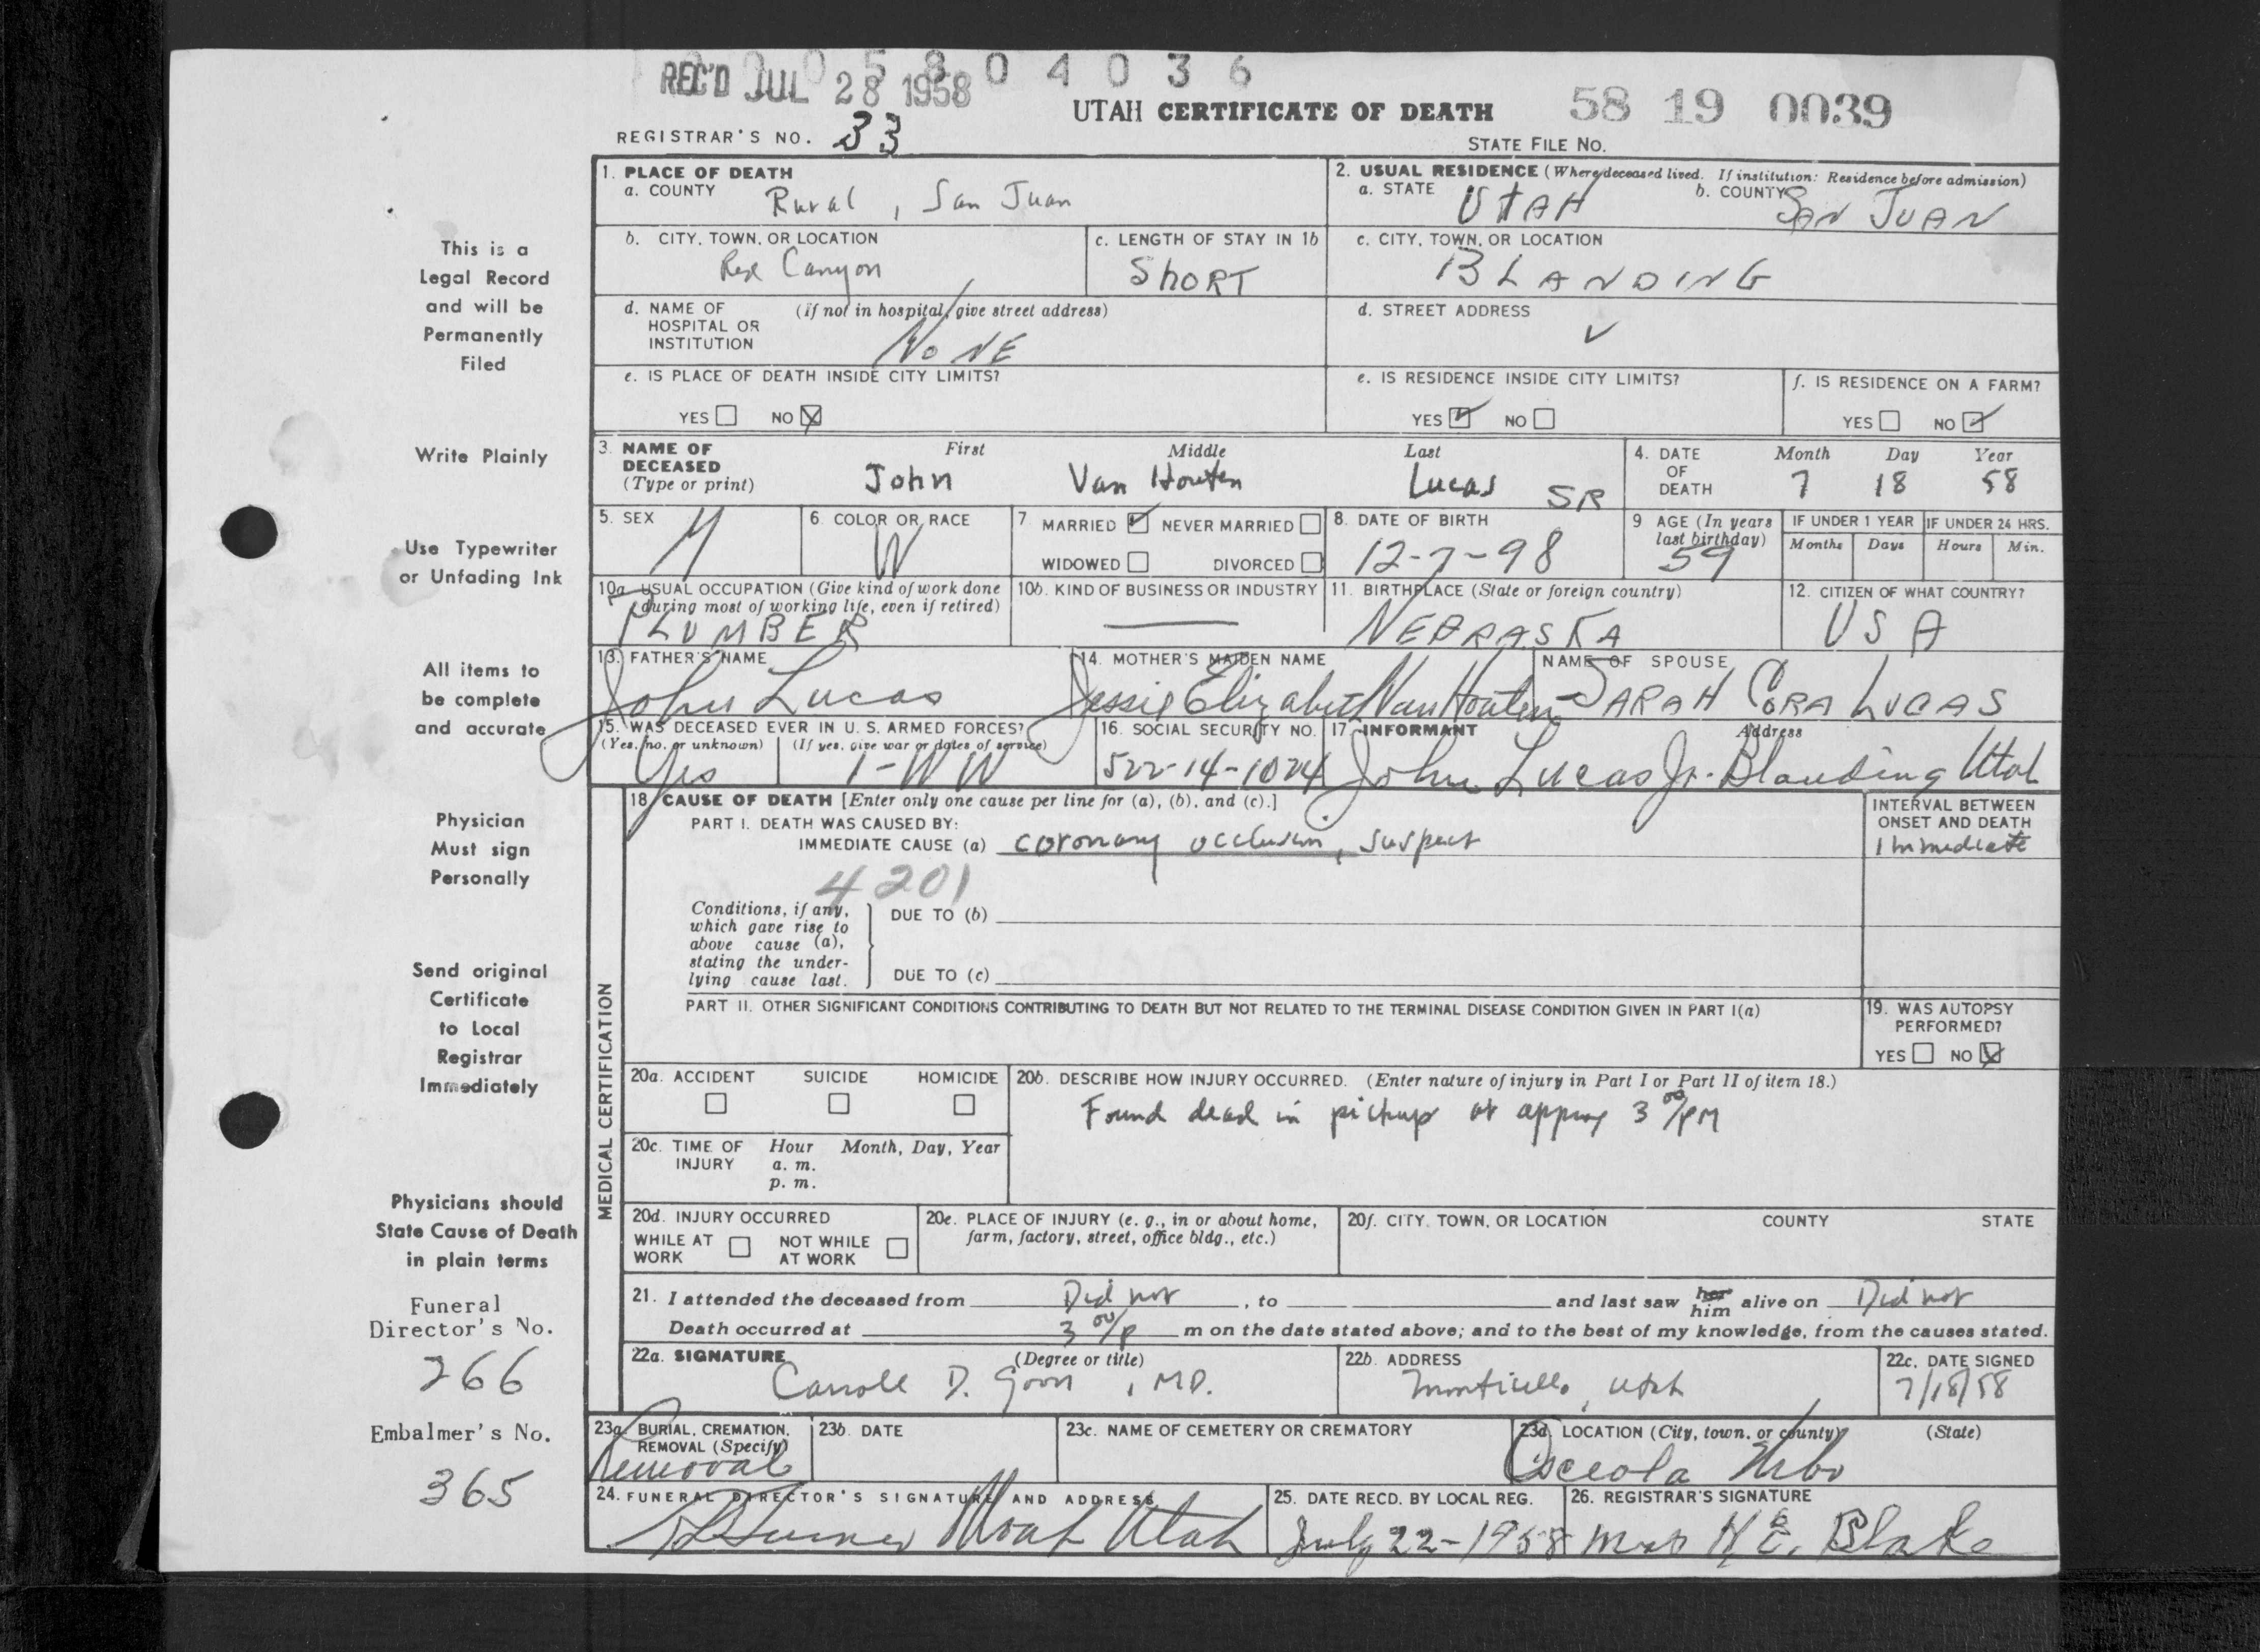 0 0 5 8 0 4 0 3 6
REC'D JUL 28 1958
UTAH CERTIFICATE OF DEATH
58 19 0039
REGISTRAR'S NO. 33
STATE FILE NO.
This is a
Legal Record
and will be
Permanently
Filed
Write Plainly
Use Typewriter
or Unfading Ink
All items to
be complete
and accurate
Physician
Must sign
Personally
Send original
Certificate
to Local
Registrar
Immediately
Physicians should
State Cause of Death
in plain terms
Funeral
Director's No.
266
Embalmer's No.
365
1. PLACE OF DEATH
a. COUNTY Rural, San Juan
2. USUAL RESIDENCE (Where deceased lived. If institution: Residence before admission)
a. STATE UTAH b. COUNTY SAN JUAN
b. CITY, TOWN, OR LOCATION
Red Canyon
c. LENGTH OF STAY IN 1b
ShORT
c. CITY, TOWN, OR LOCATION
BLANDING
d. NAME OF (If not in hospital, give street address)
HOSPITAL OR
INSTITUTION NoNE
d. STREET ADDRESS
e. IS PLACE OF DEATH INSIDE CITY LIMITS?
YES NO X
e. IS RESIDENCE INSIDE CITY LIMITS?
YES ✓ NO
f. IS RESIDENCE ON A FARM?
YES NO ✓
3. NAME OF DECEASED (Type or print)
First Middle Last
John Van Houten Lucas SR
4. DATE OF DEATH
Month Day Year
7 18 58
5. SEX
M
6. COLOR OR RACE
W
7. MARRIED ✓ NEVER MARRIED
WIDOWED DIVORCED
8. DATE OF BIRTH
12-7-98
9 AGE (In years last birthday)
59
IF UNDER 1 YEAR IF UNDER 24 HRS.
Months Days Hours Min.
10a. USUAL OCCUPATION (Give kind of work done during most of working life, even if retired)
PLUMBER
10b. KIND OF BUSINESS OR INDUSTRY
11. BIRTHPLACE (State or foreign country)
NEBRASKA
12. CITIZEN OF WHAT COUNTRY?
USA
13. FATHER'S NAME
John Lucas
14. MOTHER'S MAIDEN NAME
Jessie Elizabeth Van Houten
NAME OF SPOUSE
SARAH CORA LUCAS
15. WAS DECEASED EVER IN U. S. ARMED FORCES?
(Yes, no, or unknown) (If yes, give war or dates of service)
Yes 1-WW
16. SOCIAL SECURITY NO.
522-14-1024
17. INFORMANT Address
John Lucas Jr. Blanding Utah
MEDICAL CERTIFICATION
18. CAUSE OF DEATH [Enter only one cause per line for (a), (b), and (c).]
PART I. DEATH WAS CAUSED BY:
IMMEDIATE CAUSE (a) coronary occlusion, suspect
INTERVAL BETWEEN
ONSET AND DEATH
Immediate
4201
Conditions, if any,
which gave rise to
above cause (a),
stating the under-
lying cause last.
DUE TO (b)
DUE TO (c)
PART II. OTHER SIGNIFICANT CONDITIONS CONTRIBUTING TO DEATH BUT NOT RELATED TO THE TERMINAL DISEASE CONDITION GIVEN IN PART I(a)
19. WAS AUTOPSY
PERFORMED?
YES NO X
20a. ACCIDENT SUICIDE HOMICIDE
20b. DESCRIBE HOW INJURY OCCURRED. (Enter nature of injury in Part I or Part II of item 18.)
Found dead in pickup at approx 3 00/PM
20c. TIME OF INJURY
Hour Month, Day, Year
a. m.
p. m.
20d. INJURY OCCURRED
WHILE AT WORK NOT WHILE AT WORK
20e. PLACE OF INJURY (e. g., in or about home,
farm, factory, street, office bldg., etc.)
20f. CITY, TOWN, OR LOCATION COUNTY STATE
21. I attended the deceased from Did not, to and last saw her him alive on Did not
Death occurred at 3 00/P m on the date stated above; and to the best of my knowledge, from the causes stated.
22a. SIGNATURE (Degree or title)
Carroll D. Goon, MD.
22b. ADDRESS
Monticello, Utah
22c. DATE SIGNED
7/18/58
23a. BURIAL, CREMATION,
REMOVAL (Specify)
Removal
23b. DATE
23c. NAME OF CEMETERY OR CREMATORY
23d. LOCATION (City, town, or county) (State)
Osceola Nebr
24. FUNERAL DIRECTOR'S SIGNATURE AND ADDRESS
Moab Utah
25. DATE RECD. BY LOCAL REG.
July 22-1958
26. REGISTRAR'S SIGNATURE
Mrs H. E. Blake